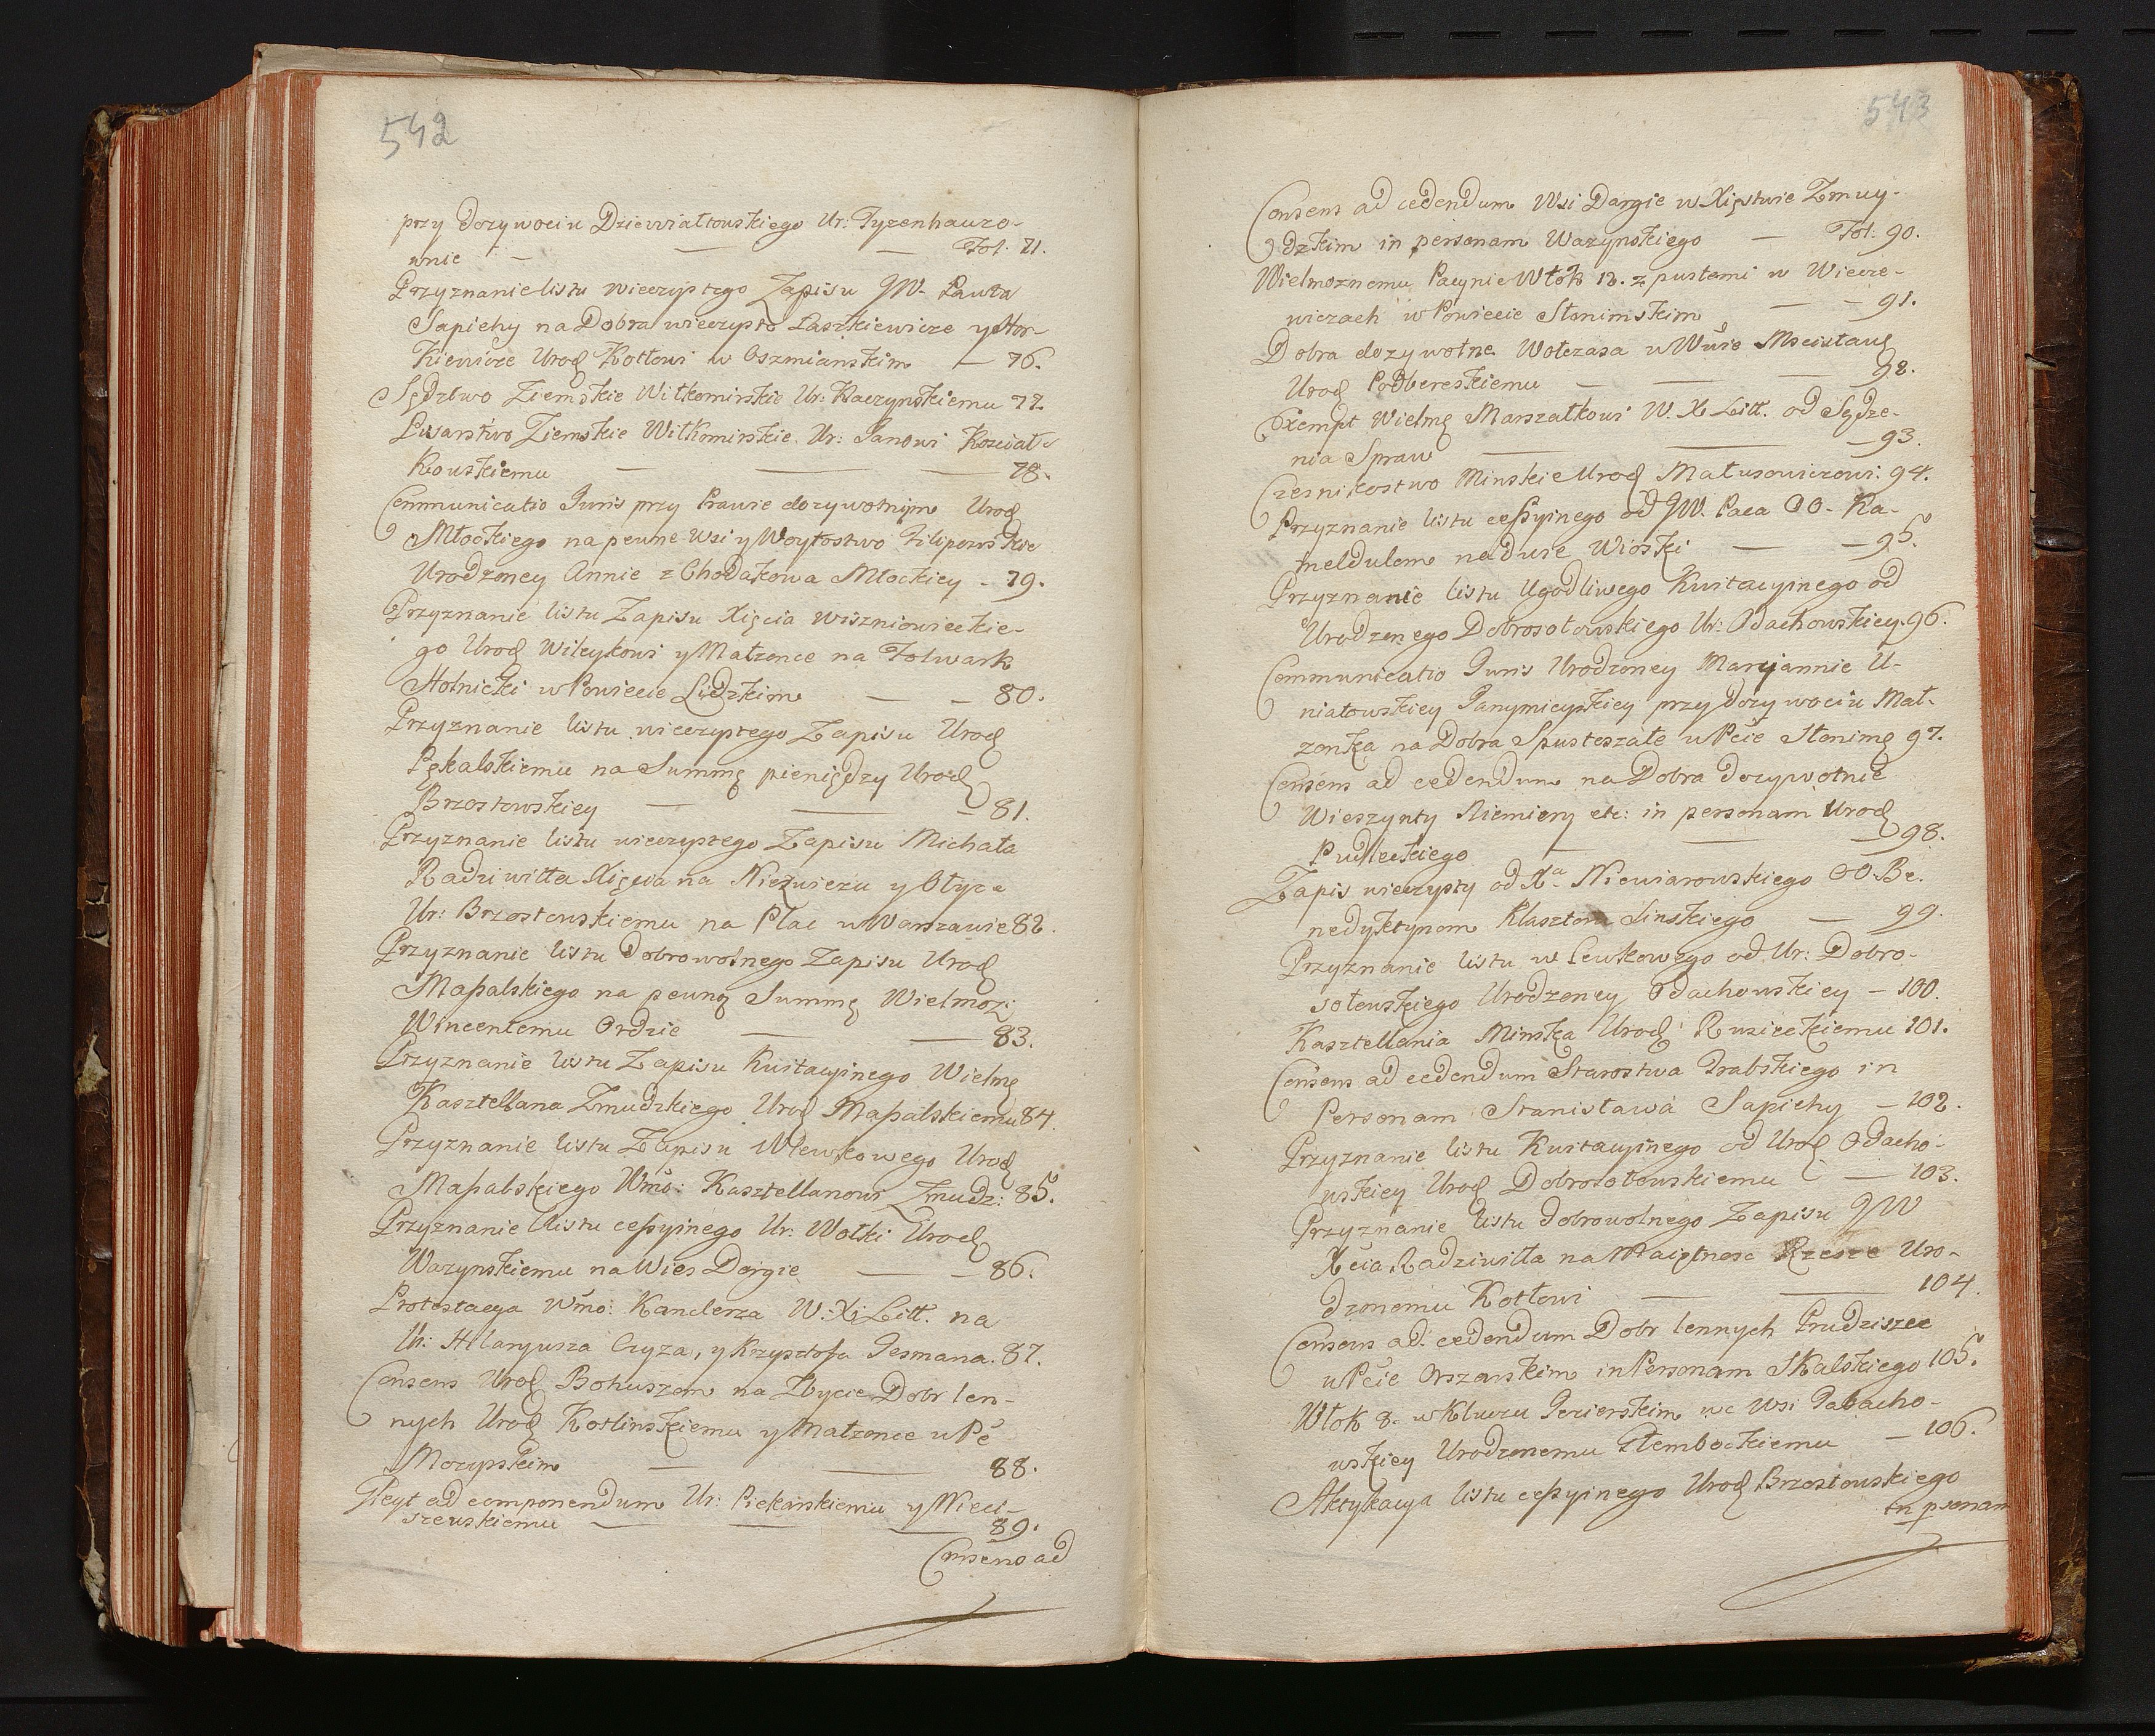 542
przy dozywociu Dziewiałtowskiego Ur: Tyzenhauzo-
wnie — — — Fol: 71.
Przyznanie listu wieczystego Zapisu JW. Pawła
Sapiehy na Dobra wieczyste Laszkiewicze y Hor-
kiewicze Urod Kotłowi w Oszmianskim — 76.
Sędztwo Ziemskie Wiłkomirskie Ur: Raczynskiemu 77.
Pisarstwo Ziemskie Wiłkomirskie Ur: Janowi Kościał-
kowskiemu — — — 78.
Communicatio Juris przy Prawie dozywotnym Urod
Młockiego na pewne Wsi y Woytostwo Filipowskie
Urodzoney Annie z Chodakowa Młockiey - 79.
Przyznanie listu Zapisu Xięcia Wiszniowieckie-
go Urod Wileykowi y Małzonce na Folwark
Hołnicki w Powiecie Lidzkim — — 80.
Przyznanie listu wieczystego Zapisu Urod
Pękalskiemu na Summę pieniędzy Urod
Brzostowskiey — — — 81.
Przyznanie listu wieczystego Zapisu Michała
Radziwiłła Xięcia na Nieświezu y Ołyce
Ur: Brzostowskiemu na Plac w Warszawie 82.
Przyznanie listu Dobrowolnego Zapisu Urod
Massalskiego na pewną Summę Wielmoz:
Wincentemu Ordzie — — 83.
Przyznanie listu Zapisu Kwitacyinego Wielmę
Kasztellana Zmudzkiego Urod Massalskiemu 84.
Przyznanie listu Zapisu Wlewkowego Urod
Massalskiego Wmo: Kasztellanowi Zmudz: 85.
Przyznanie listu cessyinego Ur: Wołki Urod
Wazynskiemu na Wies Dorgie — — 86.
Protestacya Wmo: Kanclerza W. X. Litt. na
Ur: Hilaryusza Czyza, y Krzysztofa Jesmana. 87.
Consens Urod Bohuszom na Zbycie Dobr len-
nych Urod Kotlinskiemu y Małzonce w Pe
Mozyrskim — — 88.
Gleyt ad componendum Ur: Piekarskiemu y Wiel-
szewskiemu — — — 89.
Consens ad
543
Consens ad cedendum Wsi Dargie w Xięstwie Zmuy-
dzkim in personam Wazynskiego — Fol: 90.
Wielmoznemu Pacynie Włók 18. z pustemi w Wiecze-
wiczach w Powiecie Słonimskim — — 91.
Dobra dozywotne Wołczasa w Wwie Mscisławs
Urod Podbereskiemu — — — 92.
Exempt Wielmę Marszałkowi W. X. Litt. od Sądze-
nia Spraw — — — 93.
Czesnikostwo Minskie Urod Matusowiczowi: 94.
Przyznanie listu cessyinego od JW. Paca OO. Ka-
meldulom na dwie Wioski — — 95.
Przyznanie listu Ugodliwego Kwitacyinego od
Urodzonego Dobrosołowskiego Ur: Odachowskiey. 96.
Communicatio Juris Urodzoney Maryannie U-
niatowskiey Janymicyskiey przy dozywociu Mał-
zonka na Dobra Spustoszałe w Pcie Słonimę 97.
Consens ad cedendum na Dobra dozywotnie
Wieszynty Niemiery etc: in personam Urod
Pudleckiego — — — 98.
Zapis wieczysty od Xa Niewiarowskiego OO. Be-
nedyktynom Klasztoru Linskiego — 99.
Przyznanie listu wlewkowego od Ur: Dobro-
sołowskiego Urodzoney Odachowskiey — 100.
Kasztellania Minska Urod Rusieckiemu 101.
Consens ad cedendum Starostwa Grabskiego in
Personam Stanisława Sapiehy — 102.
Przyznanie listu Kwitacyinego od Urod Odacho-
wskiey Urod Dobrosołowskiemu — 103.
Przyznanie listu dobrowolnego Zapisu JW
Xcia Radziwiłła na Maiętnosc Rzesze Uro-
dzonemu Kotłowi — — 104.
Consens ad cedendum Dobr lennych Prudziszcze
w Pcie Orszanskim in Personam Skalskiego 105.
Włok 8. w Kluczu Jezierskim we Wsi Jabacho-
wskiey Urodzonemu Głembockiemu — 106.
Aktykacya listu cessyinego Urod Brzostowskiego
in psonam